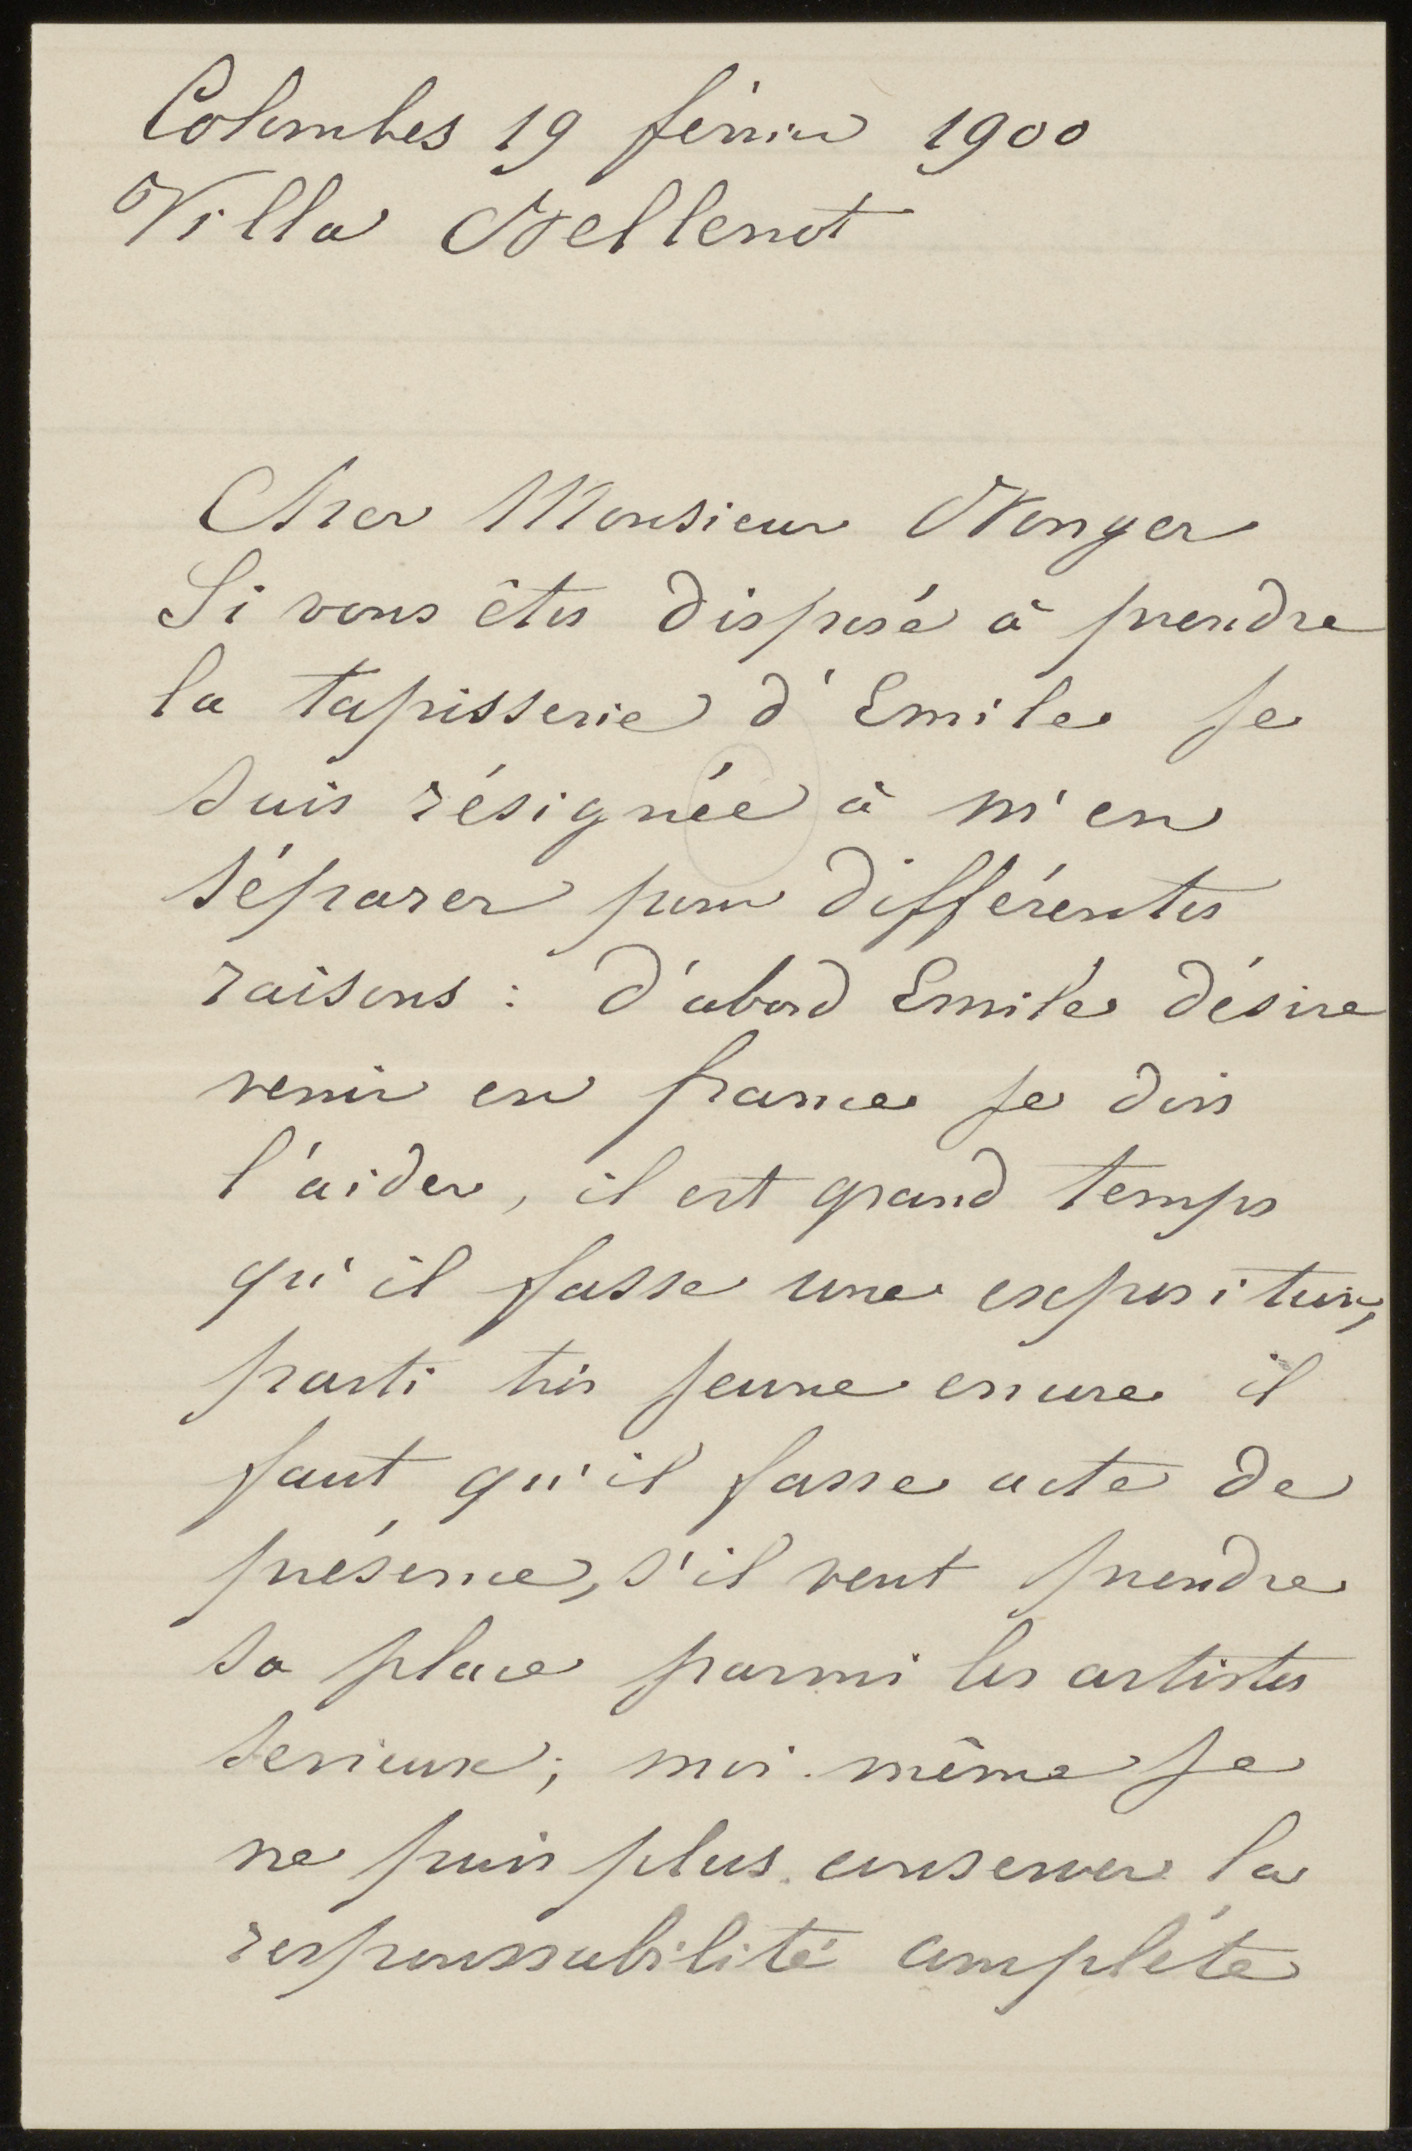 Colombes 19 février 1900
Villa Nellenot
Cher Monsieur Wonger
Si vous êtes disposé à prendre
la tapisserie d'Emile je
suis résignée à m'en
séparer pour différentes
raisons : d'abord Emile désire
venir en france je dois
l'aider, il est grand temps
qu'il fasse une exposition,
parti très jeune encore il
faut qu'il fasse acte de
présence, s'il veut prendre
sa place parmi les artistes
serieux ; moi-même je
ne puis plus conserver la
responssabilité complète